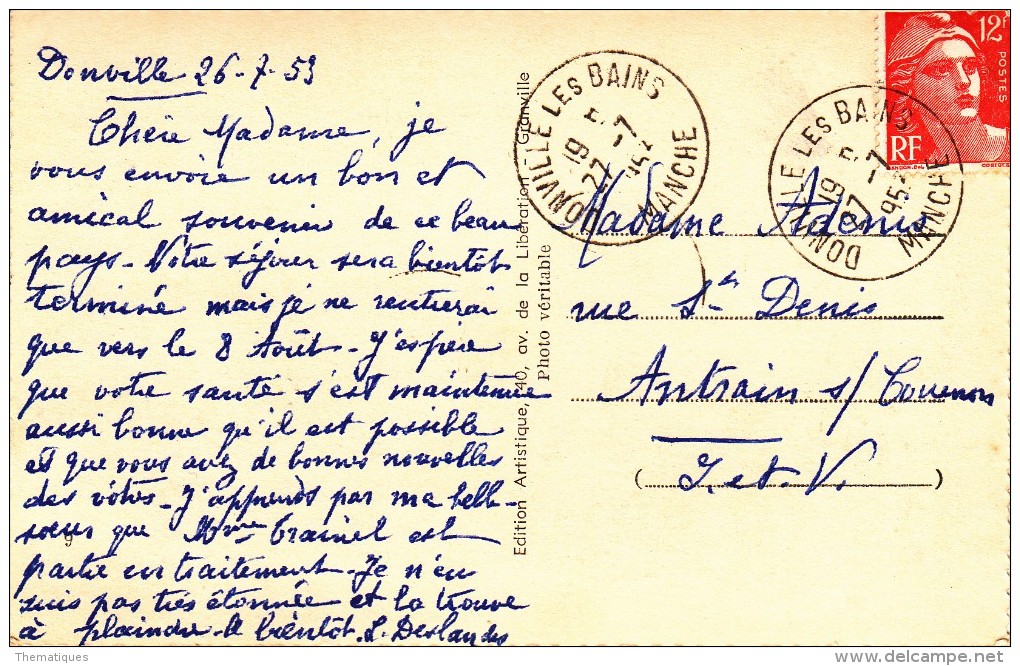 Donville 26-7-53
Chère Madame, je
vous envoie un bon et
amical souvenir de ce beau
pays. Notre séjour sera bientôt
terminé mais je ne rentrerai
que vers le 8 Août. J'espère
que votre santé s'est maintenue
aussi bonne qu'il est possible
et que vous avez de bonnes nouvelles
des vôtres. J'apprends par ma belle-
soeur que Mme Trainel est
partie en traitement. Je n'en
suis pas très étonnée et la trouve
à plaindre. A bientôt. L. Deslandes
Edition Artistique, 40, av. de la Libération Granville
Photo véritable
DONVILLE LES BAINS
19 H
27 -7
195
MANCHE
12f
POSTES
RF
DONVILLE LES BAINS
19 H
27 -7
195
MANCHE
Madame Adenis
rue St Denis
Antrain s/ Couesnon
I. et V.
Thematiques
www.delcampe.net